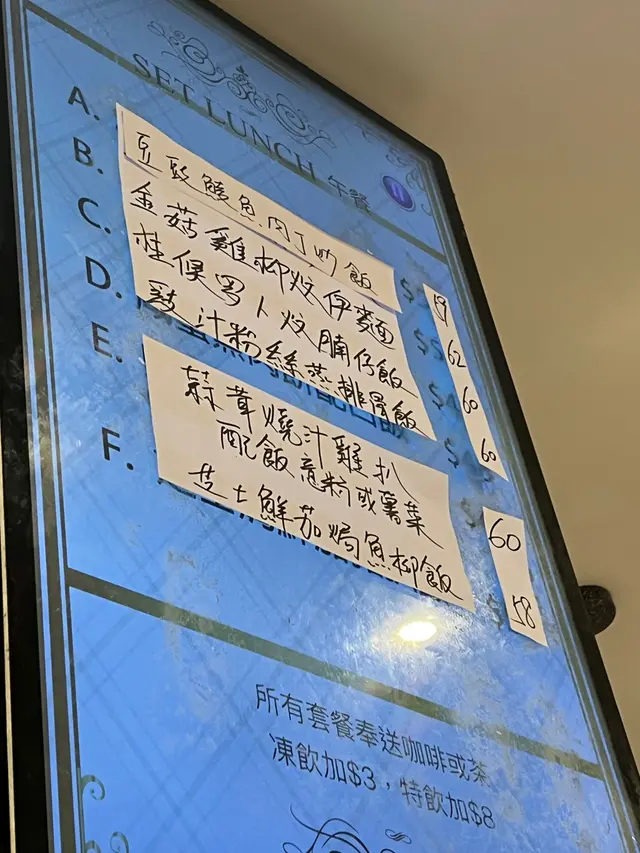 SET LUNCH 午餐
A. 豆豉鯪魚肉丁炒飯
B. 金菇雞柳炆伊麵 62
C. 柱侯羅卜炆腩仔飯 60
D. 豉汁粉絲蒸排骨飯 60
E. 蒜茸燒汁雞扒 60
配飯意粉或薯菜
F. 芝士鮮茄焗魚柳飯 58
所有套餐奉送咖啡或茶
凍飲加$3，特飲加$8